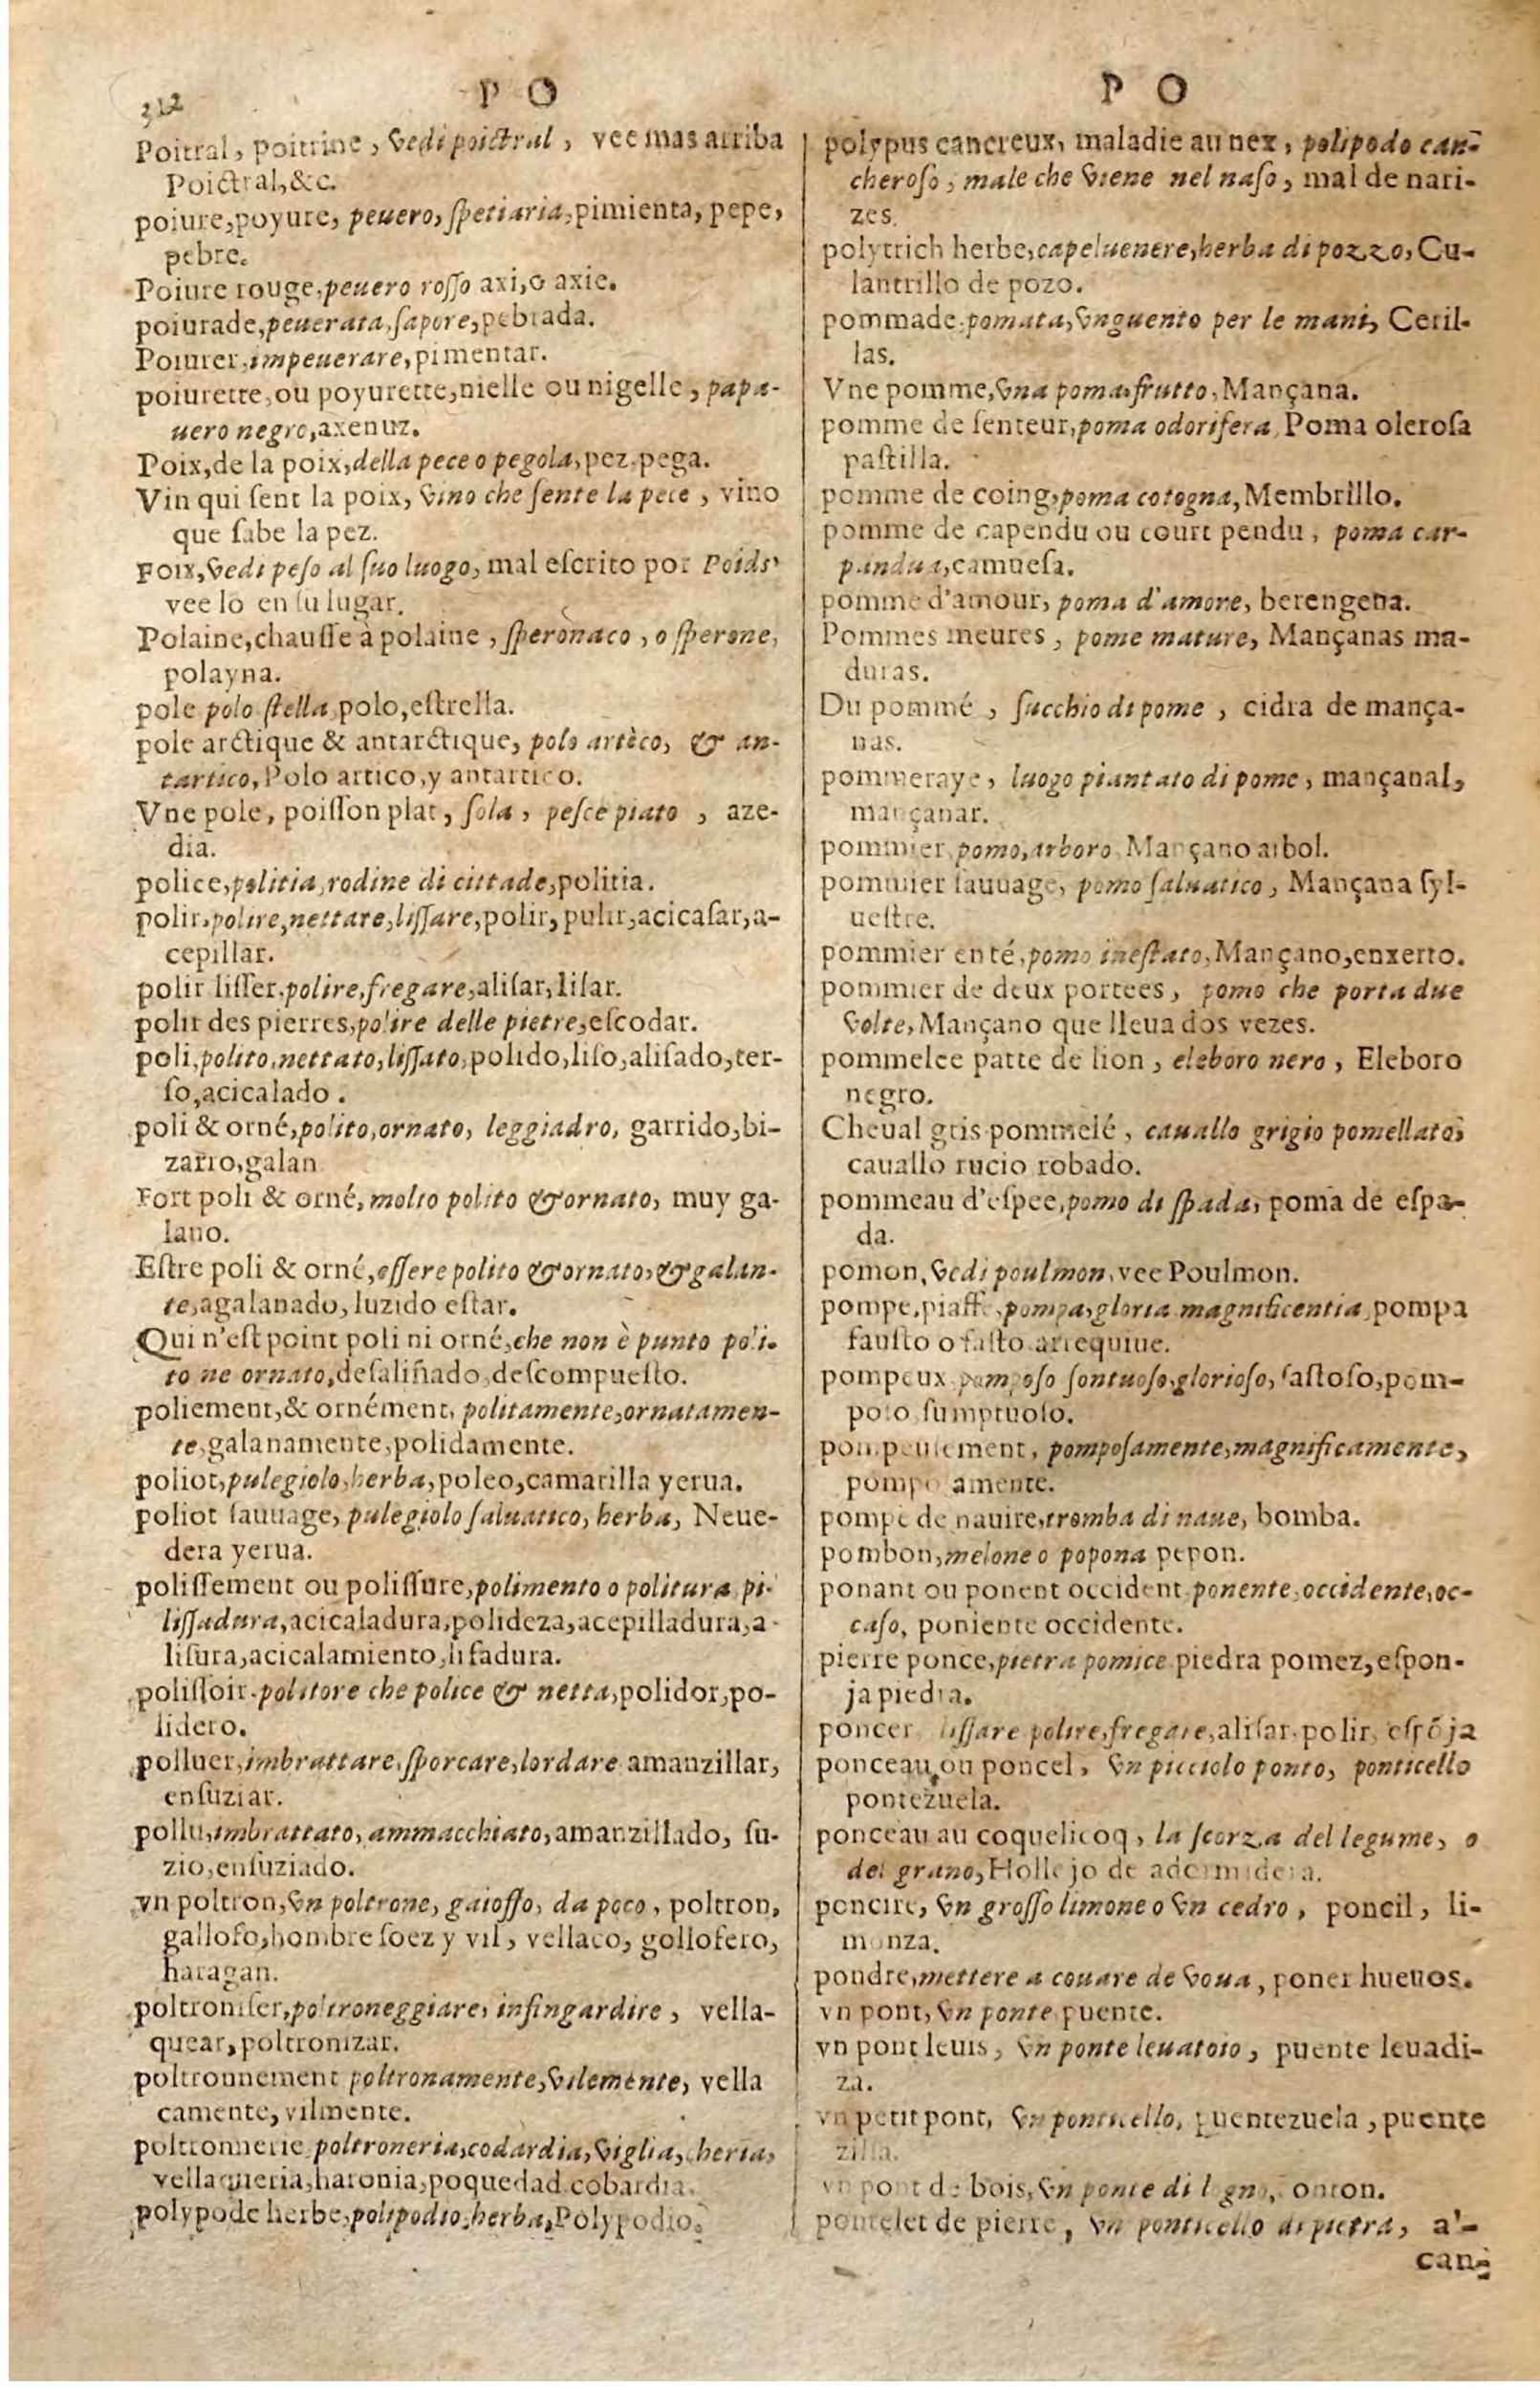 312
P O
Poitral, poitrine, vedi poictral, vee mas arriba
Poictral, &c.
poiure, poyure, peuero, ſpetiaria, pimienta, pepe,
pebre.
Poiure rouge, peuero roſſo axi, o axie.
poiurade, peuerata, ſapore, pebrada.
Poiurer, impeuerare, pimentar.
poiurette, ou poyurette, nielle ou nigelle, papa-
uero negro, axenuz.
Poix, de la poix, della pece o pegola, pez, pega.
Vin qui ſent la poix, vino che ſente la pece, vino
que ſabe la pez.
Foix, vedi peſo al ſuo luogo, mal eſcrito por Poids,
vee lo en ſu lugar.
Polaine, chauſſe à polaine, ſperònaco, o ſperone,
polayna.
pole polo ſtella polo, eſtrella.
pole arctique & antarctique, polo artèco, & an-
tartico, Polo artico, y antartico.
Vne pole, poiſſon plat, ſola, peſce piato, aze-
dia.
police, politia, rodine di cittade, politia.
polir, polire, nettare, liſſare, polir, pulir, acicaſar, a-
cepillar.
polir liſſer, polire, fregare, aliſar, liſar.
polir des pierres, polire delle pietre, eſcodar.
poli, polito, nettato, liſſato, polido, liſo, aliſado, ter-
ſo, acicalado.
poli & orné, polito, ornato, leggiadro, garrido, bi-
zarro, galan
Fort poli & orné, molto polito & ornato, muy ga-
lano.
Eſtre poli & orné, eſſere polito & ornato, & galan-
te, agalanado, luzido eſtar.
Qui n'eſt point poli ni orné, che non è punto poli-
to ne ornato, deſaliñado, deſcompueſto.
poliement, & ornément, politamente, ornatamen-
te, galanamente, polidamente.
poliot, pulegiolo, herba, poleo, camarilla yerua.
poliot ſauuage, pulegiolo ſaluatico, herba, Neue-
dera yerua.
poliſſement ou poliſſure, polimento o politura pi-
liſſadura, acicaladura, polideza, acepilladura, a-
liſura, acicalamiento, liſadura.
poliſſoir, politore che police & netta, polidor, po-
lidero.
polluer, imbrattare, ſporcare, lordare amanzillar,
enſuziar.
pollu, imbrattato, ammacchiato, amanzillado, ſu-
zio, enſuziado.
vn poltron, vn poltrone, gaioſſo, da poco, poltron,
gallofo, hombre ſoez y vil, vellaco, gollofero,
haragan.
poltroniſer, poltroneggiare, infingardire, vella-
quear, poltronizar.
poltronnement poltronamente, vilemente, vella
camente, vilmente.
poltronnerie poltroneria, codardia, vigliacheria,
vellaqueria, haronia, poquedad cobardia.
polypode herbe, polipodio, herba, Polypodio.
P O
polypus cancreux, maladie au nez, polipodo can-
cheroſo, male che viene nel naſo, mal de nari-
zes.
polytrich herbe, capeluenere, herba di pozzo, Cu-
lantrillo de pozo.
pommade, pomata, vnguento per le mani, Ceril-
las.
Vne pomme, vna poma, frutto, Mançana.
pomme de ſenteur, poma odorifera, Poma oleroſa
paſtilla.
pomme de coing, poma cotogna, Membrillo.
pomme de capendu ou court pendu, poma car-
pandua, camueſa.
pomme d'amour, poma d'amore, berengena.
Pommes meures, pome mature, Mançanas ma-
duras.
Du pommé, ſucchio di pome, cidra de mança-
nas.
pommeraye, luogo piantato di pome, mançanal,
mançanar.
pommier pomo, arboro Mançano arbol.
pommier ſauuage, pomo ſaluatico, Mançana ſyl-
ueſtre.
pommier enté, pomo ineſtato, Mançano, enxerto.
pommier de deux portees, pomo che porta due
volte, Mançano que lleua dos vezes.
pommelee patte de lion, eleboro nero, Eleboro
negro.
Cheual gris pommelé, cauallo grigio pomellato,
cauallo rucio robado.
pommeau d'eſpee, pomo di ſpada, poma de eſpa-
da.
pomon, vedi poulmon, vee Poulmon.
pompe, piaffe, pompa, gloria magnificentia pompa
fauſto o faſto arrequiue.
pompeux pomposo ſontuoſo, glorioſo, faſtoſo, pom-
poſo ſumptuoſo.
pompeuſement, pompoſamente, magnificamente,
pompoſamente.
pompe de nauire, tromba di naue, bomba.
pombon, melone o popona pepon.
ponant ou ponent occident ponente, occidente, oc-
caſo, poniente occidente.
pierre ponce, pietra pomice piedra pomez, eſpon-
ja piedra.
poncer liſſare polire, fregare, aliſar, polir, eſpõja
ponceau, ou poncel, vn picciolo ponto, ponticello
pontezuela.
ponceau au coquelicoq, la ſcorza del legume, o
del grano, Hollejo de adormidera.
poncire, vn groſſo limone o vn cedro, poncil, li-
monza.
pondre, mettere a couare de voua, poner hueuos.
vn pont, vn ponte puente.
vn pont leuis, vn ponte leuatoio, puente leuadi-
za.
vn petit pont, vn ponticello, puentezuela, puente
zilla.
vn pont de bois, vn ponte di legno, onton.
pontelet de pierre, vn ponticello di pietra, a'-
can-